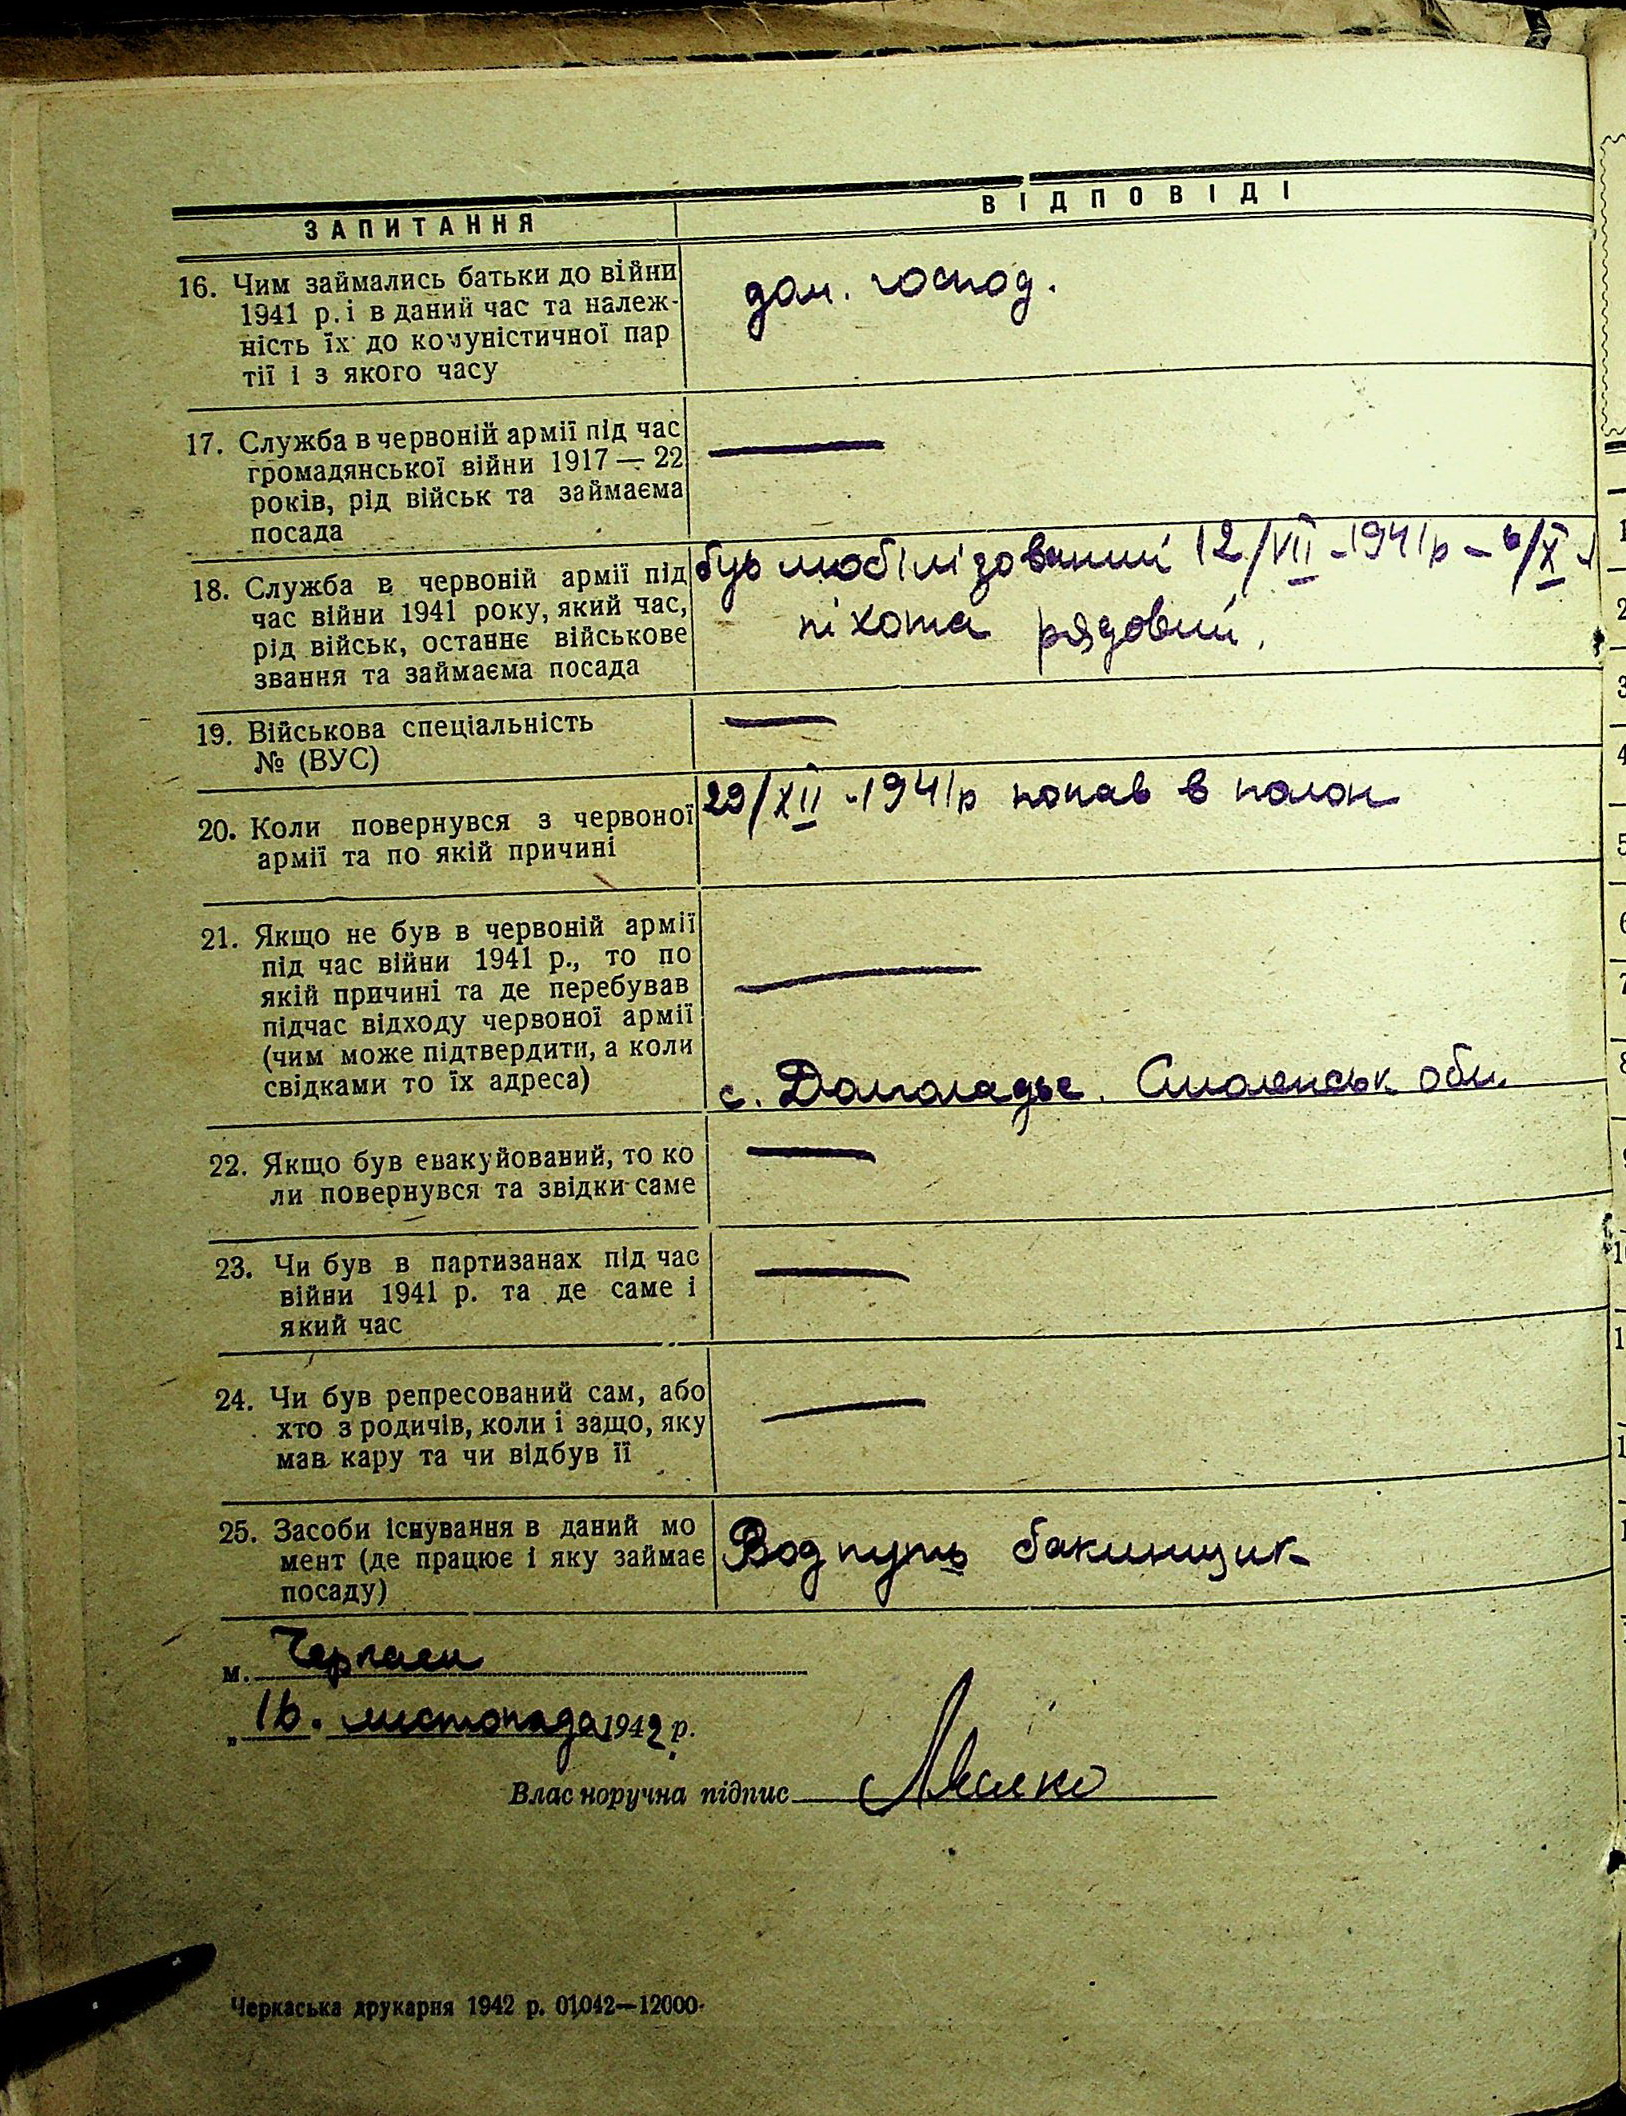 ЗАПИТАННЯ ВІДПОВІДІ
16. Чим займались батьки до війни
1941 р. і в даний час та належ-
ність їх до комуністичної пар
тії і з якого часу
дом. господ.
17. Служба в червоній армії під час
громадянської війни 1917 — 22
років, рід військ та займаєма
посада
—
18. Служба в червоній армії під
час війни 1941 року, який час,
рід військ, останнє військове
звання та займаєма посада
був мобілізований 12/VII-1941р - 6/X
піхота рядовий.
19. Військова спеціальність
№ (ВУС)
—
20. Коли повернувся з червоної
армії та по якій причині
29/XII-1941р попав в полон
21. Якщо не був в червоній армії
під час війни 1941 р., то по
якій причині та де перебував
підчас відходу червоної армії
(чим може підтвердити, а коли
свідками то їх адреса)
—
с. Смоленськ обл.
22. Якщо був евакуйований, то ко
ли повернувся та звідки саме
—
23. Чи був в партизанах під час
війни 1941 р. та де саме і
який час
—
24. Чи був репресований сам, або
хто з родичів, коли і защо, яку
мав кару та чи відбув її
—
25. Засоби існування в даний мо
мент (де працює і яку займає
посаду)
Водпуть бакинщик
м. Черкаси
„16. листопада 1942 р.
Власноручна підпис
Черкаська друкарня 1942 р. 01042—12000